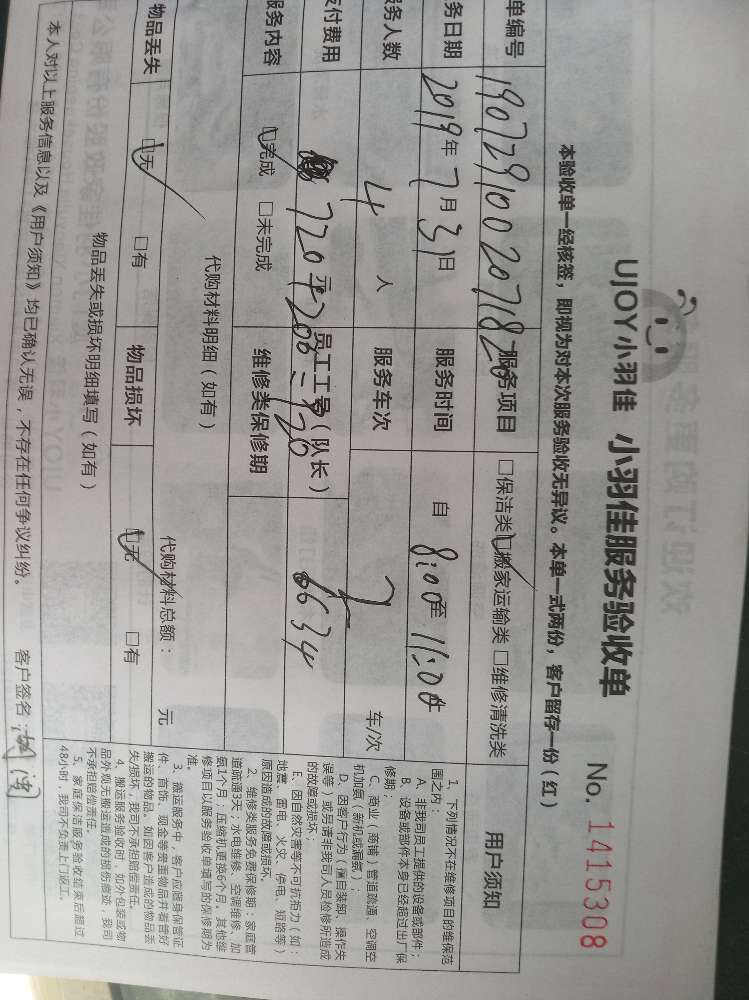 UJOY小羽佳 小羽佳服务验收单
No. 1415308
本验收单一经核签，即视为对本次服务验收无异议。本单一式两份，客户留存一份（红）
单编号 19072910020718 服务项目 □保洁类 □搬家运输类 □维修清洗类
务日期 2019年7月31日 服务时间 自 8:00至 11:00
务人数 4 人 服务车次 车/次
付费用 720元+200= 员工工号（队长） 6634
服务内容 □完成 □未完成 维修类保修期
代购材料明细（如有） 代购材料总额： 元
物品丢失 □无 □有 物品损坏 □无 □有
物品丢失或损坏明细填写（如有）
本人对以上服务信息以及《用户须知》均已确认无误，不存在任何争议纠纷。 客户签名：
用户须知
1、下列情况不在维修项目的维保范
围之内：
A、非我司员工提供的设备或部件；
B、设备或部件本身已经超过出厂保
修期；
C、商业（商铺）管道疏通、空调空
机加氨（新机或漏氨）；
D、因客户行为（擅自装卸、操作失
误等）或另请非我司人员检修所造成
的故障或损坏
E、因自然灾害等不可抗拒力（如：
地震、雷电、火灾、停电、短路等）
原因造成的故障或损坏。
2、维修类服务免费保修期：家庭管
道疏通3天；水电维修、空调维修、加
氨1个月；压缩机更换6个月。其他维
修项目以服务验收单填写的保修期为
准。
3、搬运服务中，客户应随身保管证
件、首饰、现金等贵重物品并看管好
搬运的物品。如因客户造成的物品丢
失/损坏，我司不承担赔偿责任。
4、搬运服务验收时，如外包装或物
品外观无搬运造成的损伤痕迹，我司
不承担赔偿责任。
5、家庭保洁服务验收结束后超过
48小时，我司不负责上门返工。